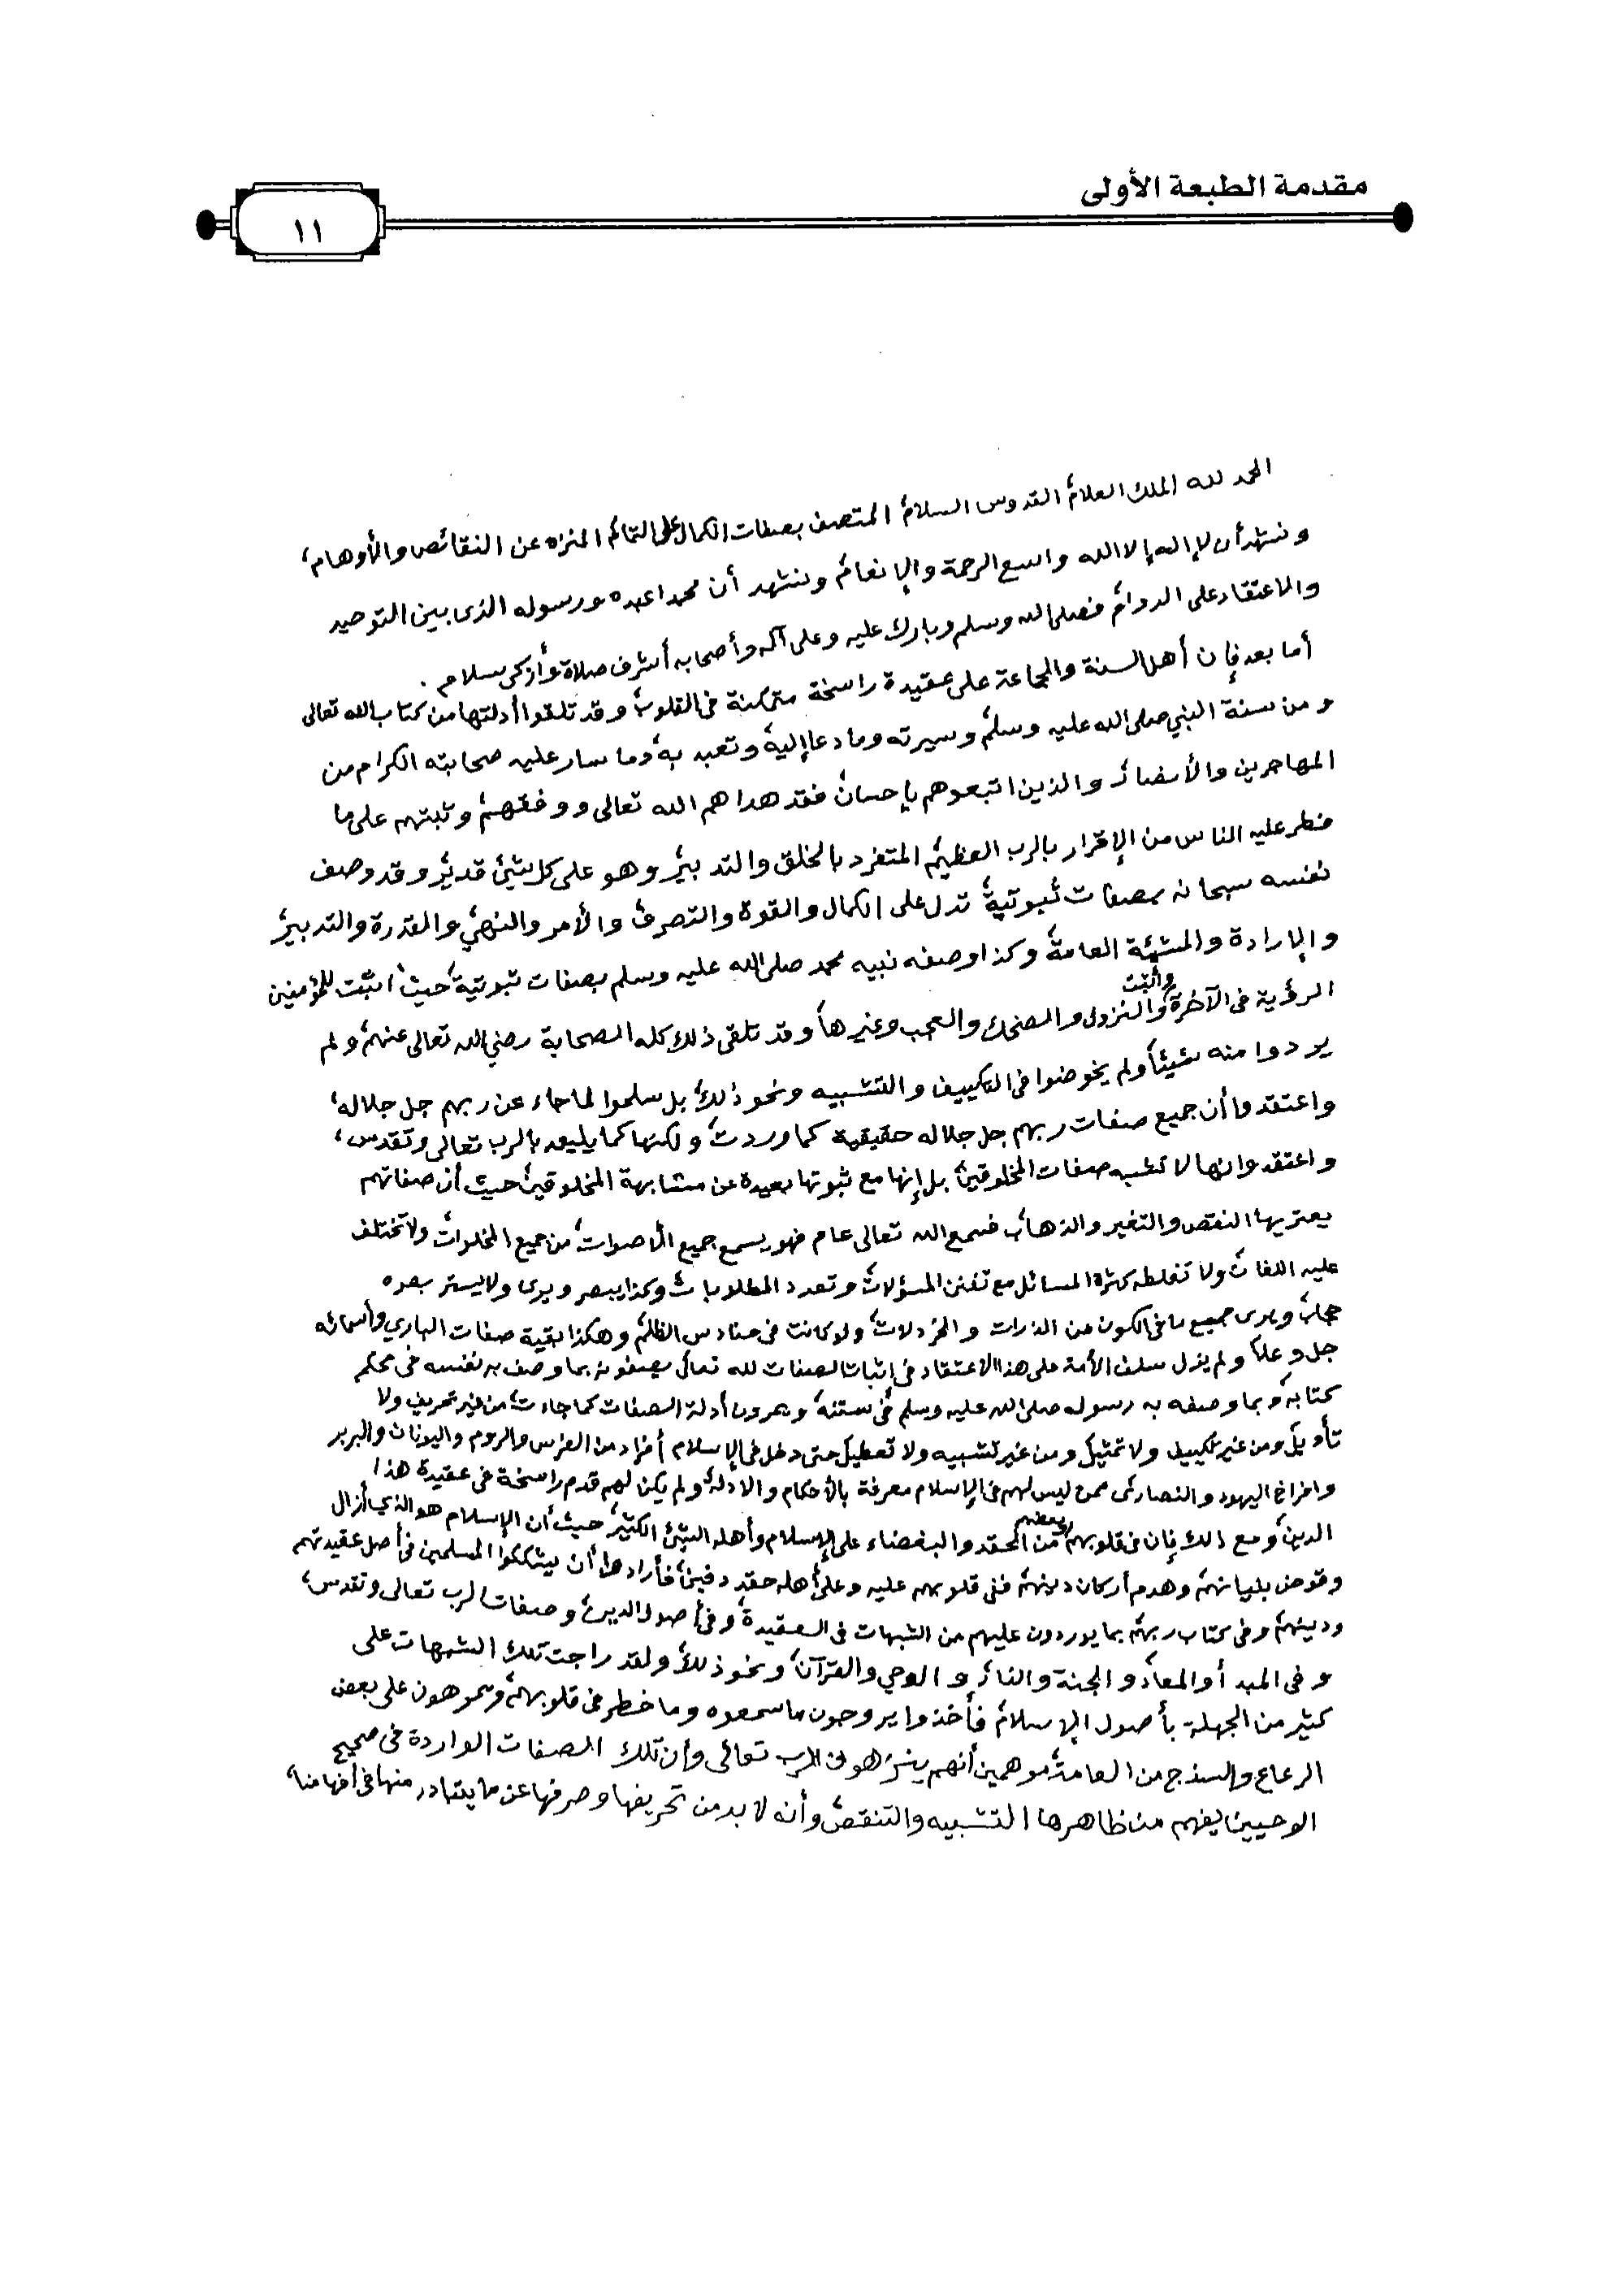 مقدمة الطبعة الأولى
١١
الحمد لله الملك العلام، القدوس السلام، المتصف بصفات الكمال على التمام، المنزه عن النقائص والأوهام،
ونشهد أن لا إله إلا الله واسع الرحمة والإنعام، ونشهد أن محمدا عبده ورسوله الذى بين التوحيد
والاعتقاد على الدوام، فصلى الله وسلم وبارك عليه وعلى آله وأصحابه أشرف صلاة وأزكى سلام.
أما بعد فإن أهل السنة والجماعة على عقيدة راسخة متمكنة فى القلوب، وقد تلقوا أدلتها من كتاب الله تعالى
ومن سنة النبي صلى الله عليه وسلم، وسيرته وما دعا إليه، وتعبد به، وما سار عليه صحابته الكرام من
المهاجرين والأنصار، والذين اتبعوهم بإحسان، فقد هداهم الله تعالى ووفقهم، وثبتهم على ما
فطر عليه الناس من الإقرار بالرب العظيم، المتفرد بالخلق والتدبير، وهو على كل شيئ قدير، وقد وصف
نفسه سبحانه بصفات ثبوتية، تدل على الكمال والقوة والتصرف، والأمر والنهي، والمقدرة والتدبير،
والإرادة والمشيئة العامة، وكذا وصفه نبيه محمد صلى الله عليه وسلم بصفات ثبوتية، حيث أثبت للمؤمنين
الرؤية فى الآخرة، وأثبت النزول والضحك والعجب وغيرها، وقد تلقى ذلك كله الصحابة رضي الله تعالى عنهم، ولم
يردوا منه شيئاً، ولم يخوضوا فى التكييف والتشبيه ونحو ذلك، بل سلموا لما جاء عن ربهم جل جلاله،
واعتقدوا أن جميع صفات ربهم جل جلاله حقيقية كما وردت، ولكنها كما يليق بالرب تعالى وتقدس،
واعتقدوا انها لا تشبه صفات المخلوقين، بل إنها مع ثبوتها بعيدة عن مشابهة المخلوقين، حيث أن صفاتهم
يعتريها النقص والتغير والذهاب، فسمع الله تعالى عام فهو يسمع جميع الأصوات، من جميع المخلوقات، ولا تختلف
عليه اللغات، ولا تغلطه كثرة المسائل مع تفنن المسؤلات، وتعدد المطلوبات، وكذا يبصر ويرى ولا يستر بصره
حجاب، ويرى جميع ما فى الكون من الذرات والخردلات، ولو كانت فى حنادس الظلم، وهكذا بقية صفات الباري وأسمائه
جل وعلا، ولم يزل سلف الأمة على هذا الاعتقاد فى اثبات الصفات لله تعالى يصفونه بما وصف به نفسه فى محكم
كتابه، وبما وصفه به رسوله صلى الله عليه وسلم، فى سنته، ويمرون أدلة الصفات كما جاءت، من غير تحريف ولا
تأويل، ومن غير تكييف ولا تمثيل، ومن غير تشبيه ولا تعطيل، حتى دخل فى الإسلام أفراد من الفرس والروم واليونان والبربر
وافراخ اليهود والنصارى، ممن ليس لهم فى الإسلام معرفة بالأحكام والأدلة، ولم يكن لهم قدم راسخة فى عقيدة هذا
الدين، ومع ذالك فإن فى قلوب بعضهم من الحقد والبغضاء على الإسلام وأهله الشيئ الكثير، حيث أن الإسلام هو الذي أزال
وقوض بنيانهم، وهدم أركان دينهم، ففى قلوبهم عليه وعلى أهله حقد دفين، فأرادوا أن يشككوا المسلمين فى أصل عقيدتهم
ودينهم، وفى كتاب ربهم، بما يوردون عليهم من الشبهات فى العقيدة، وفى أصول الدين، وصفات الرب تعالى وتقدس،
وفى المبدأ والمعاد، والجنة والنار، والوحي والقرآن، ونحو ذلك، ولقد راجت تلك الشبهات على
كثير من الجهلة بأصول الإسلام، فأخذوا يروجون ما سمعوه وما خطر فى قلوبهم، ويموهون على بعض
الرعاع والسذج من العامة، موهمين أنهم ينزهون الرب تعالى وأن تلك الصفات الواردة فى صحيح
الوحيين، يفهم من ظاهرها التشبيه والتنقص، وأنه لا بد من تحريفها وصرفها عن ما يتبادر منها فى أفهامنا،